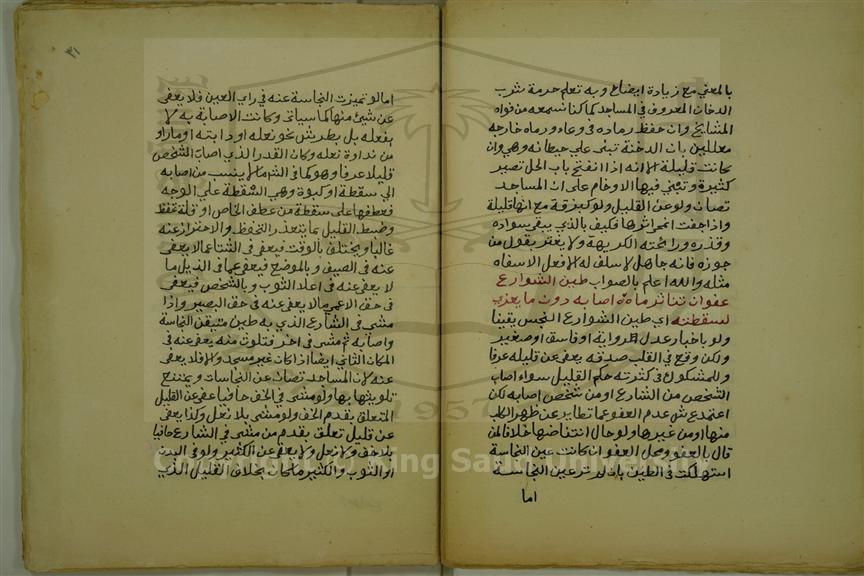 بالمعنى مع زيادة ايضاح وبه تعلم حرمة شرب
الدخان المعروف في المساجد كما كنا نسمعه من فواه
المشايخ وان حفظ رماده في وعاء ورماه خارجه
معللين بان الدخنة تبقى علي حيطانه وهي وان
كانت قليلة الا انه اذا انفتح باب الحل تصير
كثيرة وتبقي فيها الاوخام على ان المساجد
تصان ولو عن القليل ولو كبزقة مع انها قليلة
واذا جفت انمحى اثرها فكيف بالذي يبقى سواده
وقذره ورائحته الكريهة ولا يغتر بقول من
جوزه فانه جاهل لا سلف له الا فعل الاسفاه
مثله والله اعلم بالصواب طين الشوارع
عفوان تناثر ماءه اصابه دون ما يعزى
لسقطته اي طين الشوارع النجس يقينا
ولو باخبار عدل الرواية او فاسق او صغير
ولكن وقع في القلب صدقه يعفى عن قليله عرفا
وللمشكوك في كثرته حكم القليل سواء اصاب
الشخص من الشارع او من شخص اصابه لكن
اعتمد ع ش عدم العفو عما تطاير عن ظهر الكلب
منها او من غيرها ولو حال انتفاضها خلافا لمن
قال بالعفو ومحل العفو ان كانت عين النجاسة
استهلكت في الطين بان لم تر عين النجاسة
اما
٣١
اما لو تميزت النجاسة عنه في راي العين فلا يعفى
عن شيئ منها كما سياتى وكانت الاصابة به لا
بفعله بل بطريش نحو نعله او دابته او مار او
من نداوة نعله وكان القدر الذي اصاب الشخص
قليلا عرفا وهو كما في الشرح ما لا ينسب من اصابه
الي سقطة او كبوة وهي السقطة علي الوجه
فعطفها على سقطة من عطف الخاص او قلة تحفظ
وضبط القليل بما يتعذر التحفظ والاحتراز عنه
غالبا ويختلف بالوقت فيعفى في الشتا عما لا يعفى
عنه في الصيف وبالموضع فيعفى عما في الذيل ما
لا يعفى عنه في اعلا الثوب وبالشخص فيعفى
في حق الاعمى ما لا يعفى عنه في حق البصير واذا
مشى في الشارع الذي به طين متيقن النجاسة
واصابه ثم مشى في اخر فتلوث منه يعفى عنه في
المكان الثاني ايضا اذا كان غير مسجد والا فلا يعفى
عنه لان المساجد تصان عن النجاسات ويمتنع
تلويثها بها ولو مشى في الخف حافيا عفي عن القليل
المتعلق بقدم الخف ولو مشى بلا نعل وكذا يعفى
عن قليل تعلق بقدم من مشى في الشارع حافيا
بلا خف ولا نعل ولا يعفى عن الكثير ولو في البدن
او الثوب والكثير ما كان بخلاف القليل الذي
1957
Copyright © King Saud University